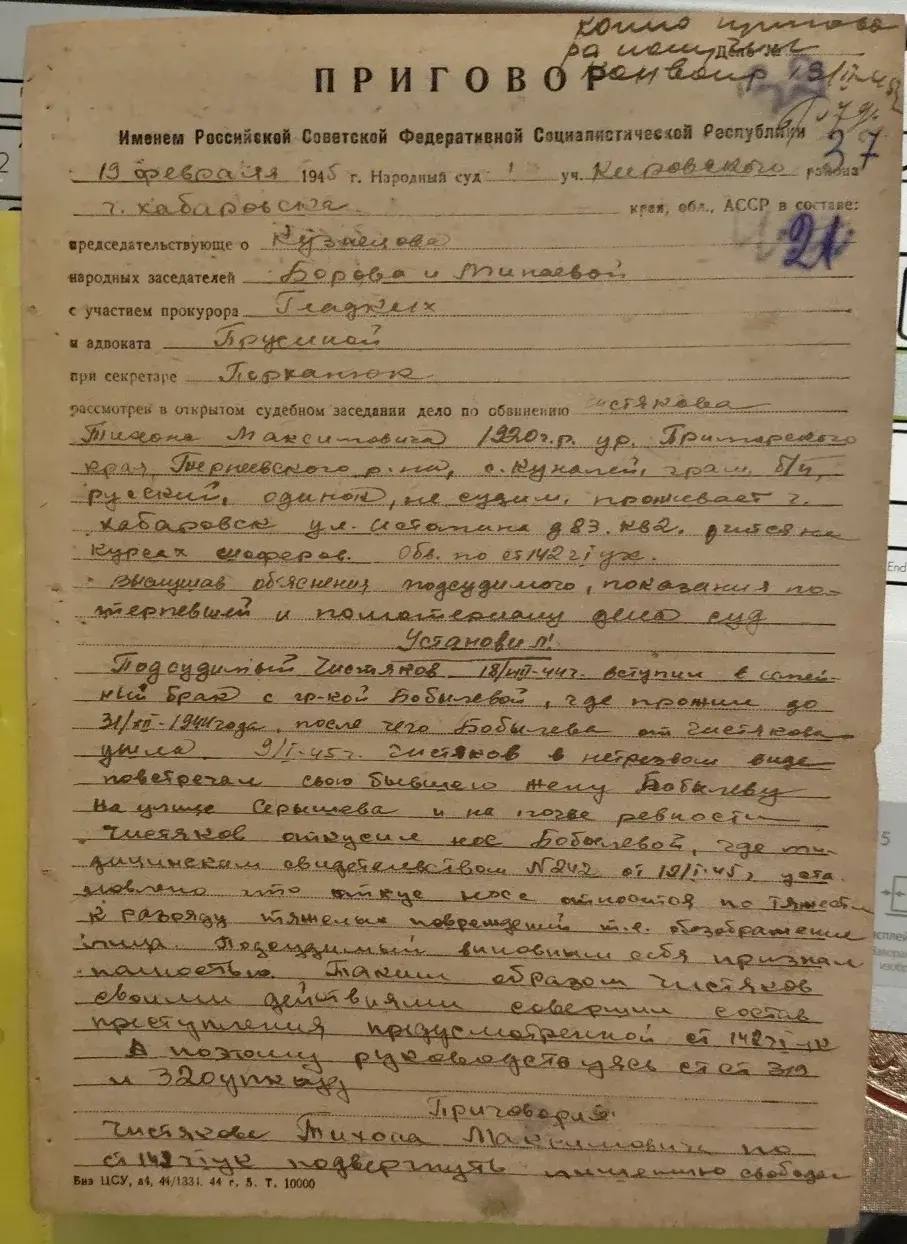 копию пригово
ра получил
Дело №
конвоир 19/II-45
ПРИГОВОР
Именем Российской Советской Федеративной Социалистической Республики
37
19 февраля 1945 г. Народный суд 1 уч. Кировского района
г. Хабаровска края, обл., АССР в составе:
21
председательствующего Кузнецова
народных заседателей Борова и Минаевой
с участием прокурора Гладких
и адвоката Прусиной
при секретаре Порканюк
рассмотрев в открытом судебном заседании дело по обвинению Чистякова
Тихона Максимовича 1920 г.р. ур. Приморского
края, Тернеевского р-на, с. Куналей, грам. б/п,
русский, одинок, не судим, проживает г.
Хабаровск ул. Истомина д 83. кв 2. учится на
курсах шоферов. Обв. по ст 142 ч I ук.
Выслушав объяснения подсудимого, показания по-
терпевшей и по материалу дела суд
Установил!
Подсудимый Чистяков 18/XII-44 г. вступил в семей-
ный брак с гр-кой Бобылевой, где прожил до
31/XII-1944 года, после чего Бобылева от Чистякова
ушла. 9/I-45 г. Чистяков в нетрезвом виде
повстречал свою бывшею жену Бобылеву
на улице Серышева и на почве ревности
Чистяков откусил нос Бобылевой, где ме-
дицинским свидетельством № 242 от 12/I-45 г. уста
новлено что откус носа относится по тяжести
к разряду тяжелых повреждений т.е. обезображение
лица. Подсудимый виновным себя признал
полностью. Таким образом Чистяков
своими действиями совершил состав
преступления предусмотренной ст 142 ч I ук
А поэтому руководствуясь ст ст 319
и 320 упк суд
Приговорил:
Чистякова Тихона Максимовича по
ст 142 ч I ук подвергнуть лишению свободы
Биз ЦСУ, а4, 44/1331. 44 г. 5. Т. 10000